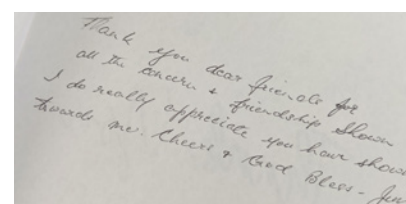 Thank you dear friends for
all the concern & friendship shown
I do really appreciate you have shown
towards me. Cheers & God Bless -